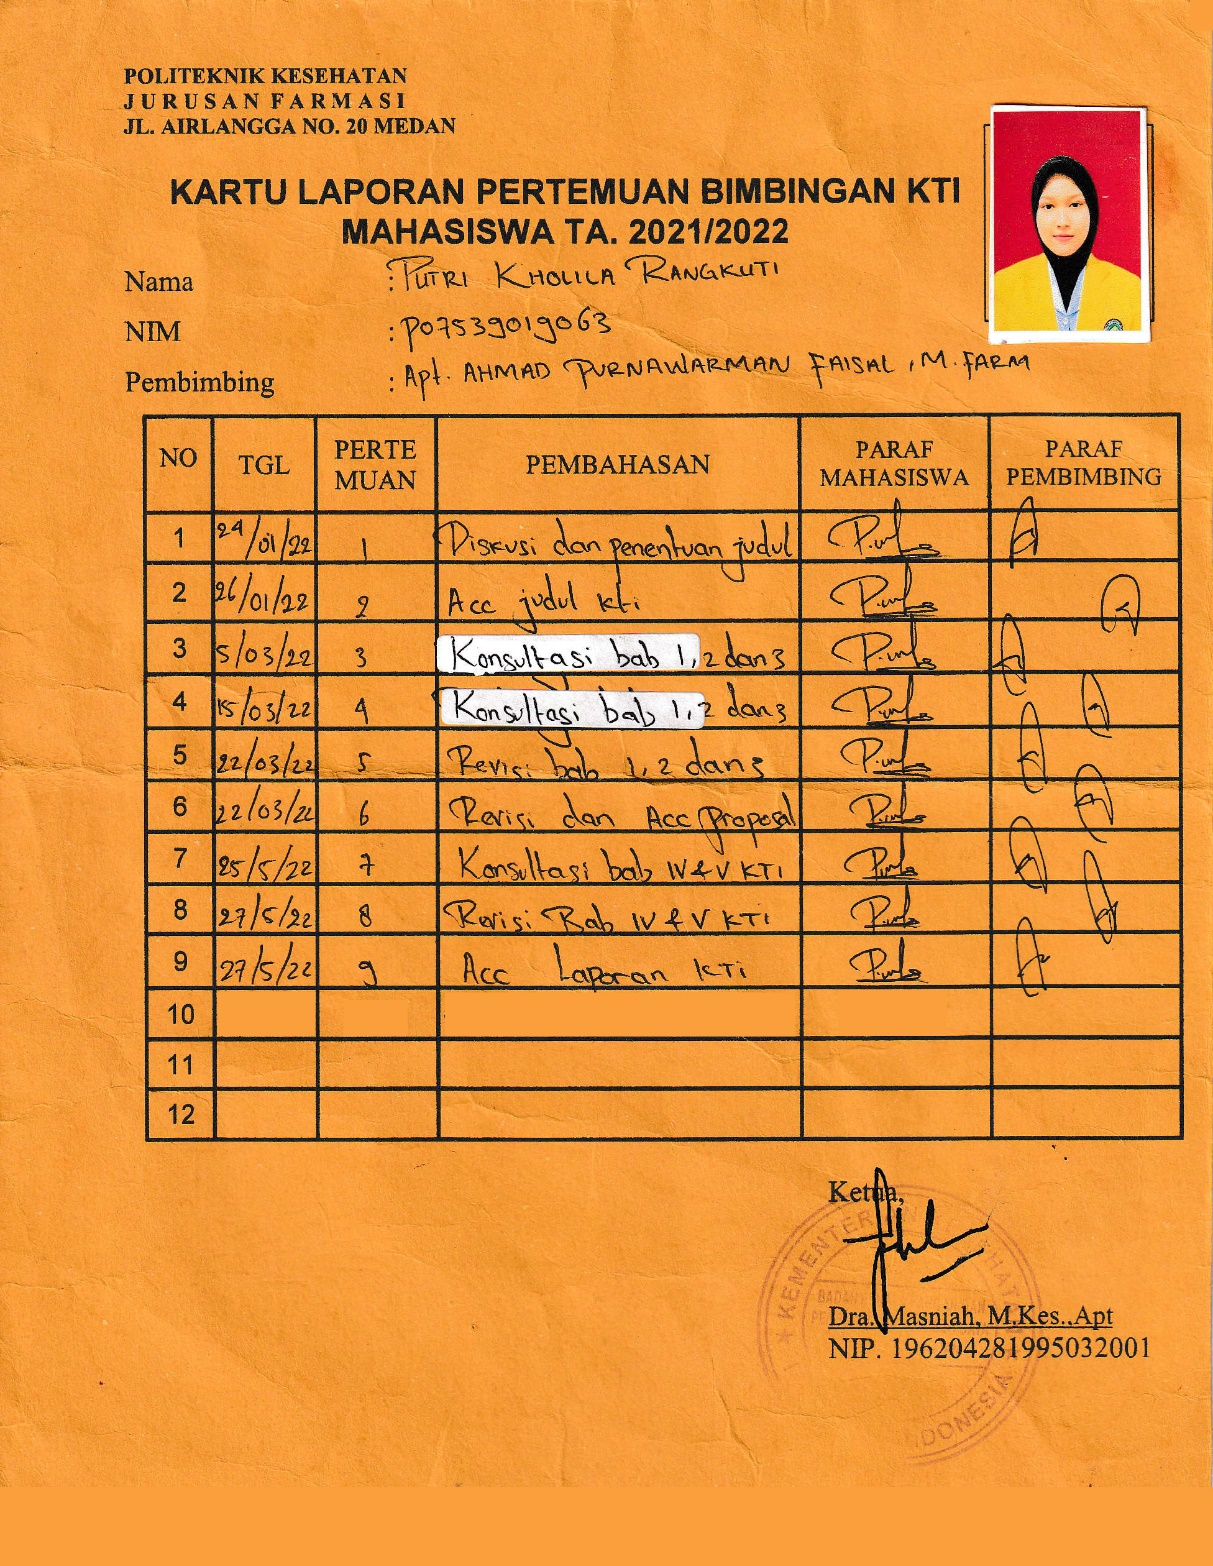 POLITEKNIK KESEHATAN
JURUSAN FARMASI
JL. AIRLANGGA NO. 20 MEDAN
KARTU LAPORAN PERTEMUAN BIMBINGAN KTI
MAHASISWA TA. 2021/2022
Nama : PUTRI KHOLILA RANGKUTI
NIM : P07539019063
Pembimbing : Apt. AHMAD PURNAWARMAN FAISAL, M.FARM
NO TGL PERTE MUAN PEMBAHASAN PARAF MAHASISWA PARAF PEMBIMBING
1 24/01/22 1 Diskusi dan penentuan judul
2 26/01/22 2 Acc judul kti
3 5/03/22 3 Konsultasi bab 1,2 dan 3
4 15/03/22 4 Konsultasi bab 1,2 dan 3
5 22/03/22 5 Revisi bab 1,2 dan 3
6 22/03/22 6 Revisi dan Acc Proposal
7 25/5/22 7 Konsultasi bab IV & V KTI
8 27/5/22 8 Revisi Bab IV & V KTI
9 27/5/22 9 Acc Laporan KTi
10
11
12
Ketua,
KEMENTER
BADAN
INDONESIA
Dra. Masniah, M.Kes.,Apt
NIP. 196204281995032001